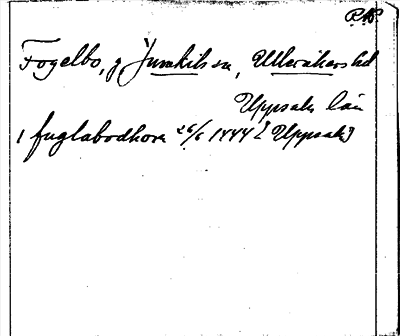 RAP
Fogelbo, g Jumkils sn, Ulleråkers hd
Uppsala län
i fuglabodhom 26/6 1444 [Uppsala]